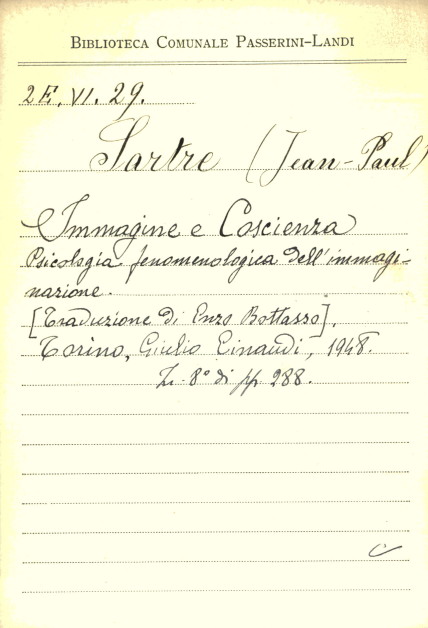 BIBLIOTECA COMUNALE PASSERINI-LANDI
2E. VI. 29.
Sartre (Jean-Paul)
Immagine e Coscienza
Psicologia fenomenologica dell'immagi-
nazione.
[Traduzione di Enzo Bottasso].
Torino, Giulio Einaudi, 1948.
8° di pp. 288.